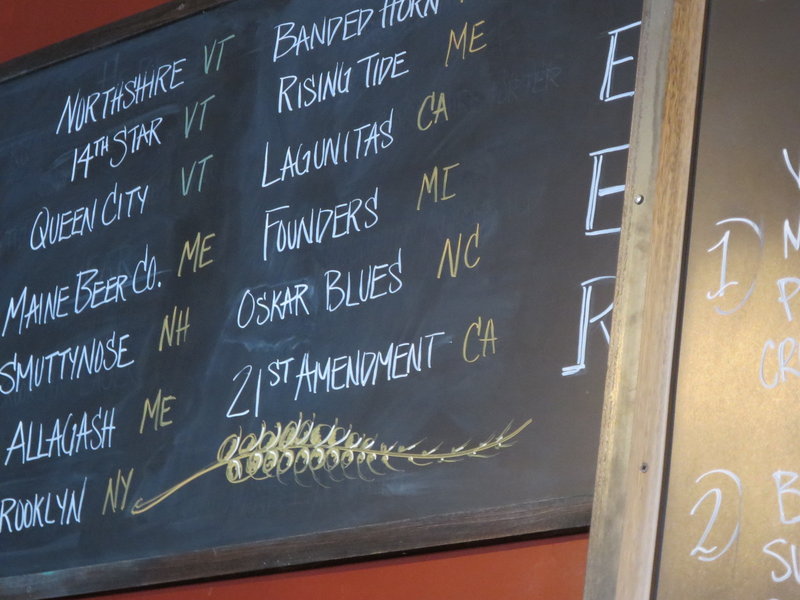 NORTHSHIRE VT
14TH STAR VT
QUEEN CITY VT
MAINE BEER CO. ME
SMUTTYNOSE NH
ALLAGASH ME
ROOKLYN NY
BANDED HORN
RISING TIDE ME
LAGUNITAS CA
FOUNDERS MI
OSKAR BLUES NC
21ST AMENDMENT CA
E
E
R
1)
P
CR
2)
B
SU